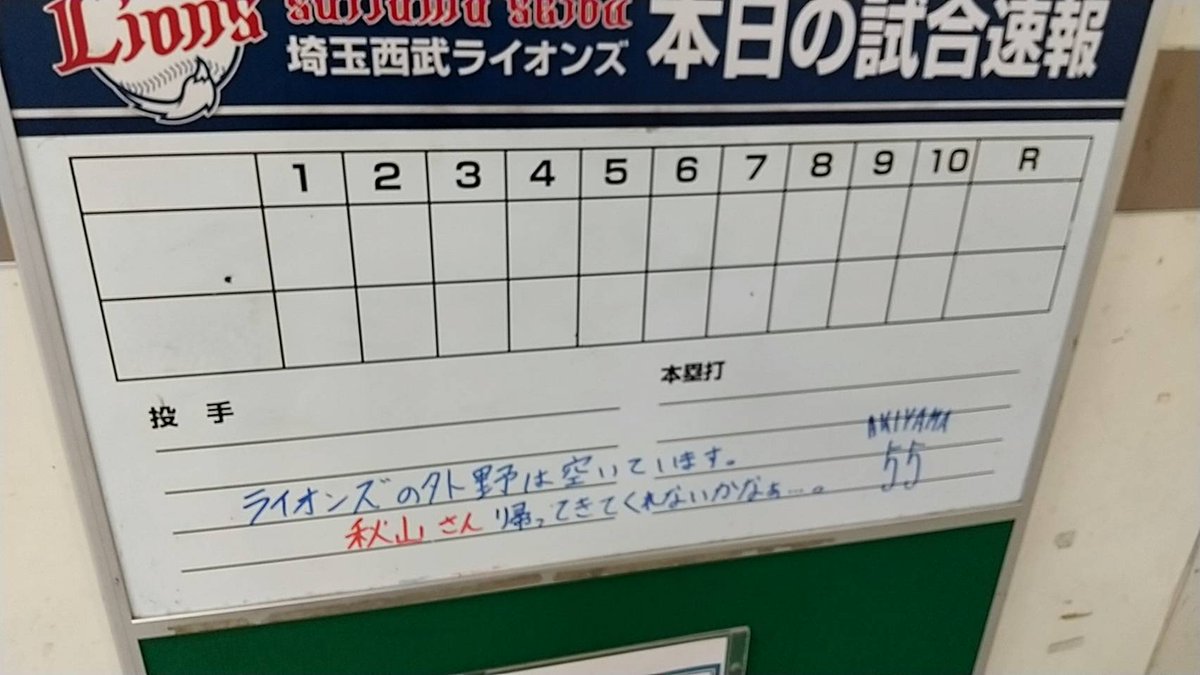 Lions
saitama seibu
埼玉西武ライオンズ
本日の試合速報
1 2 3 4 5 6 7 8 9 10 R
投 手
本塁打
AKIYAMA
55
ライオンズの外野は空いています。
秋山さん帰ってきてくれないかなぁ…。